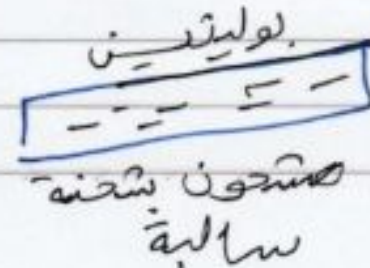 بوليثين
مشحون بشحنة
سالبة